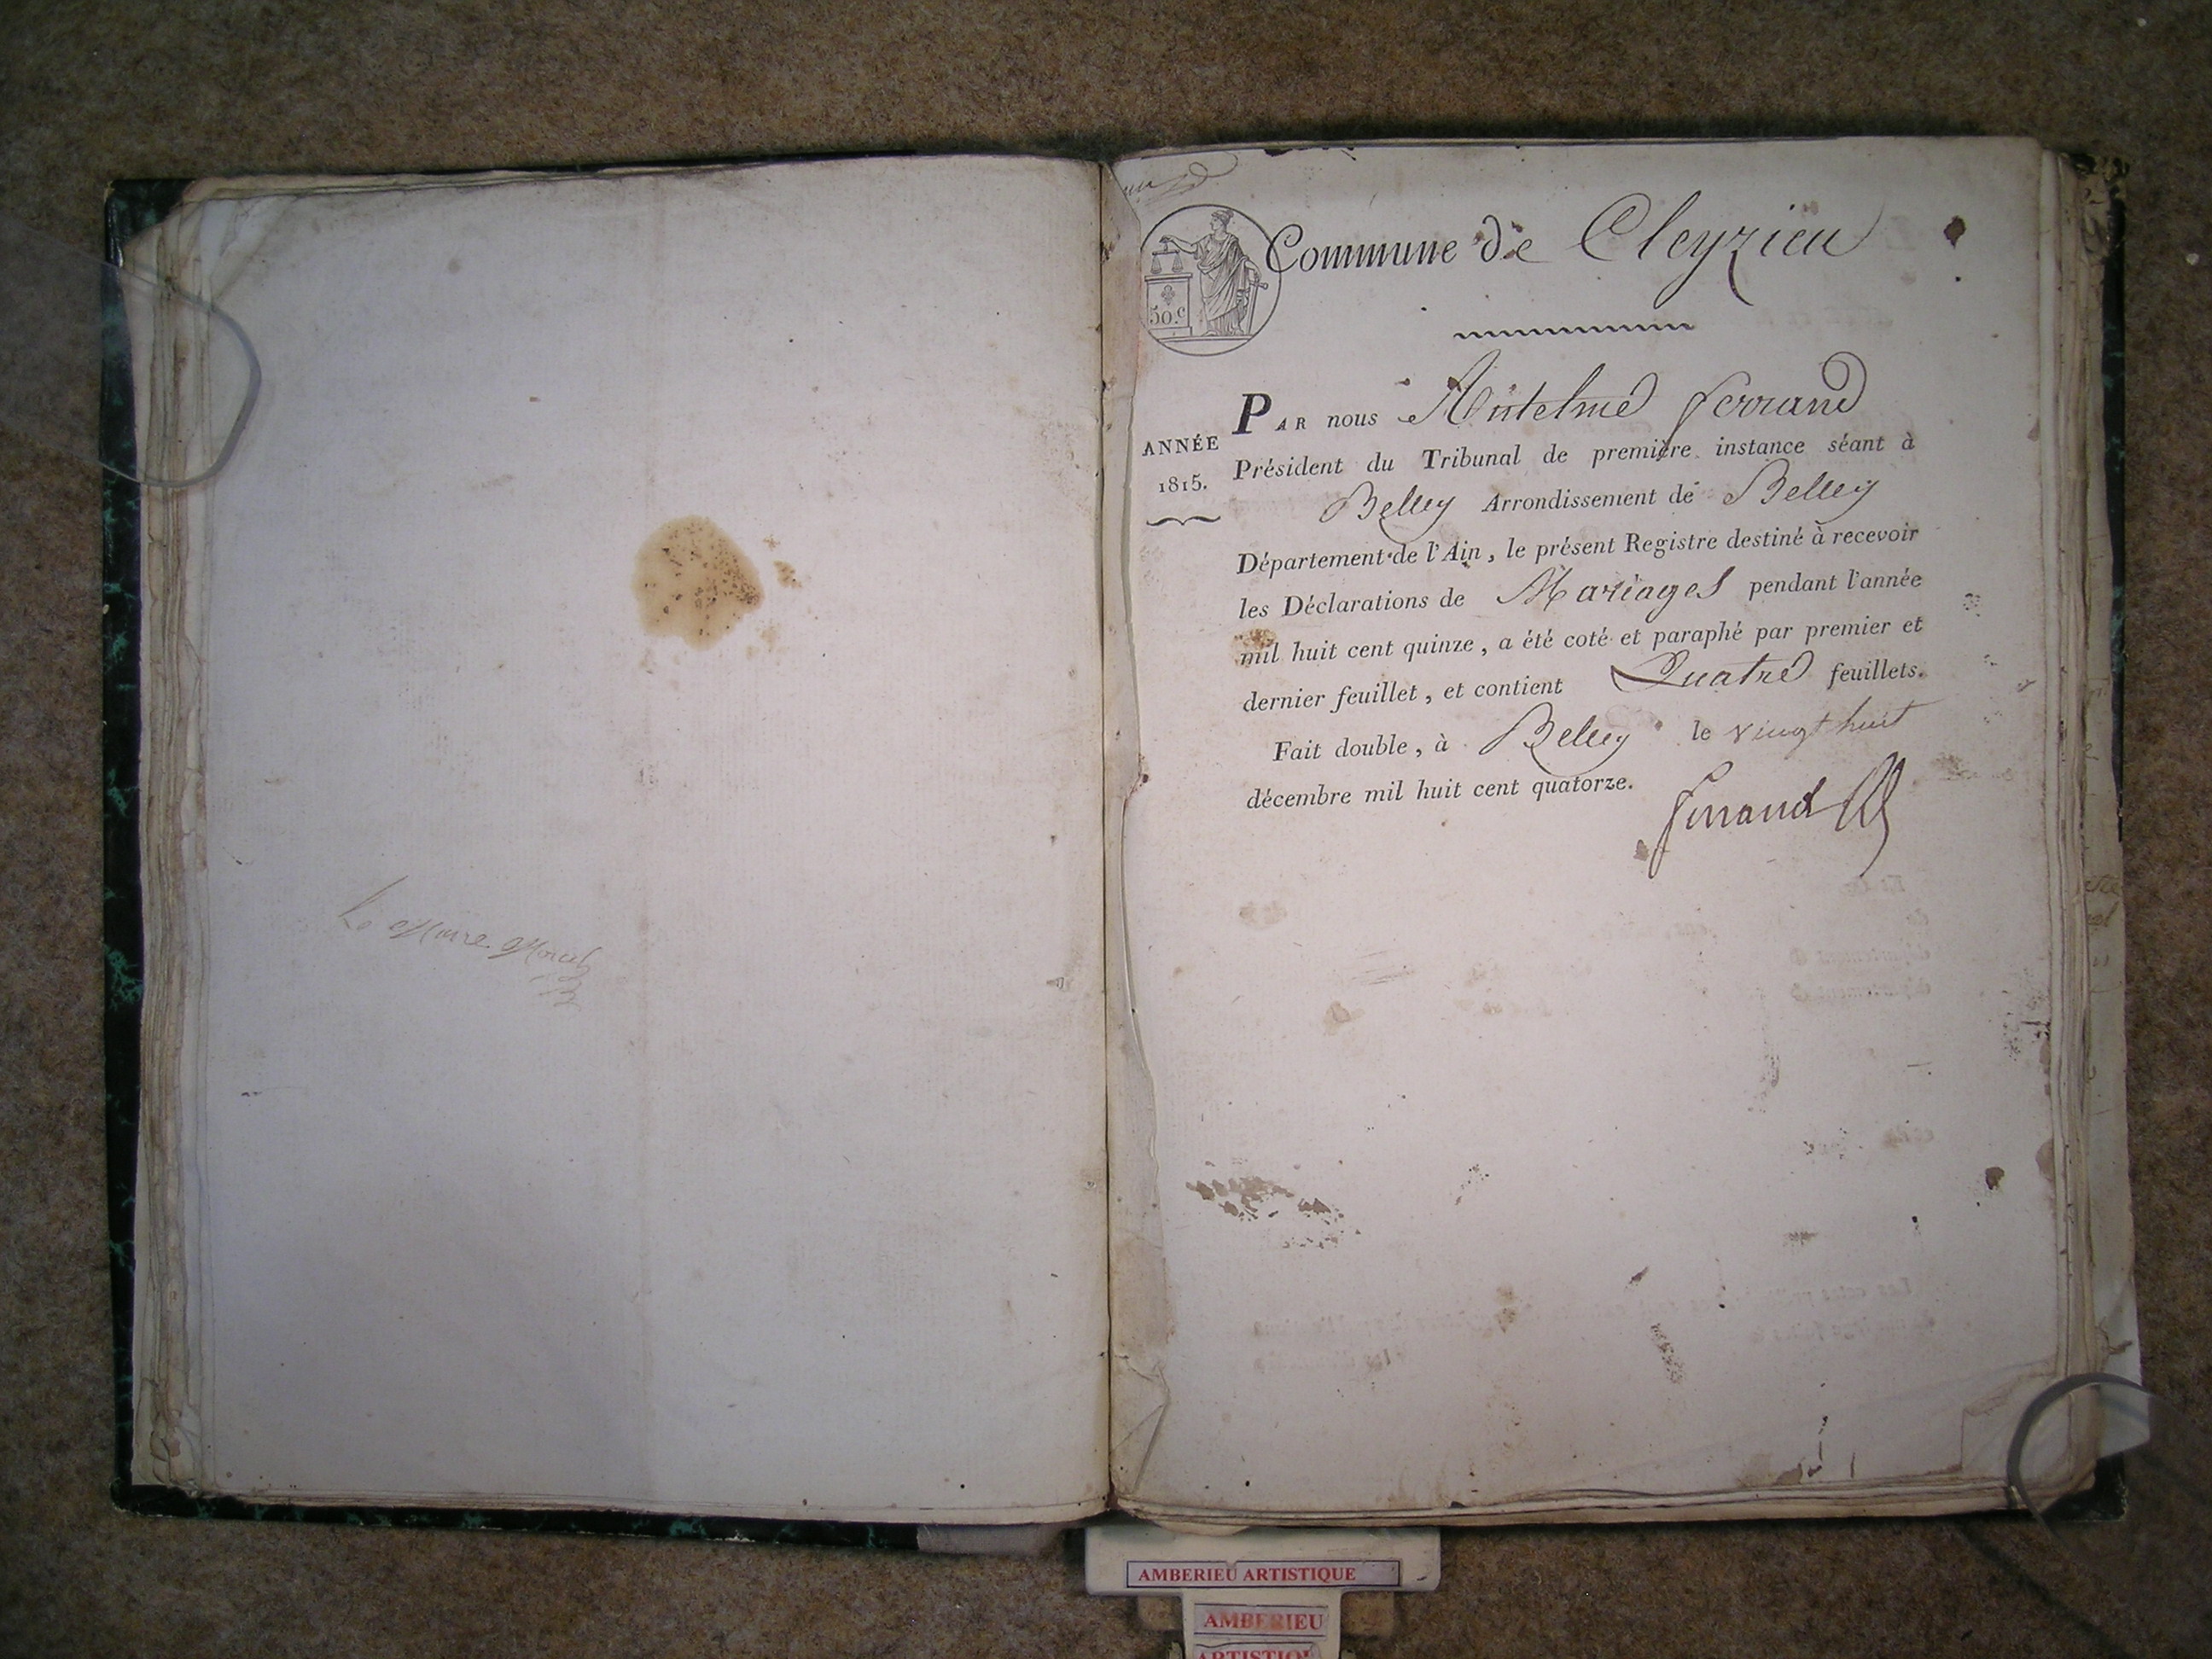 Le Maire
Commune de Cleyzieu
50.c
ANNÉE
1815.
PAR nous Antelme ferrand
Président du Tribunal de première instance séant à
Belley Arrondissement de Belley
Département de l'Ain, le présent Registre destiné à recevoir
les Déclarations de Mariages pendant l'année
mil huit cent quinze, a été coté et paraphé par premier et
dernier feuillet, et contient Quatre feuillets.
Fait double, à Belley le vingt huit
décembre mil huit cent quatorze.
ferrand
AMBERIEU ARTISTIQUE
AMBERIEU
ARTISTIQUE